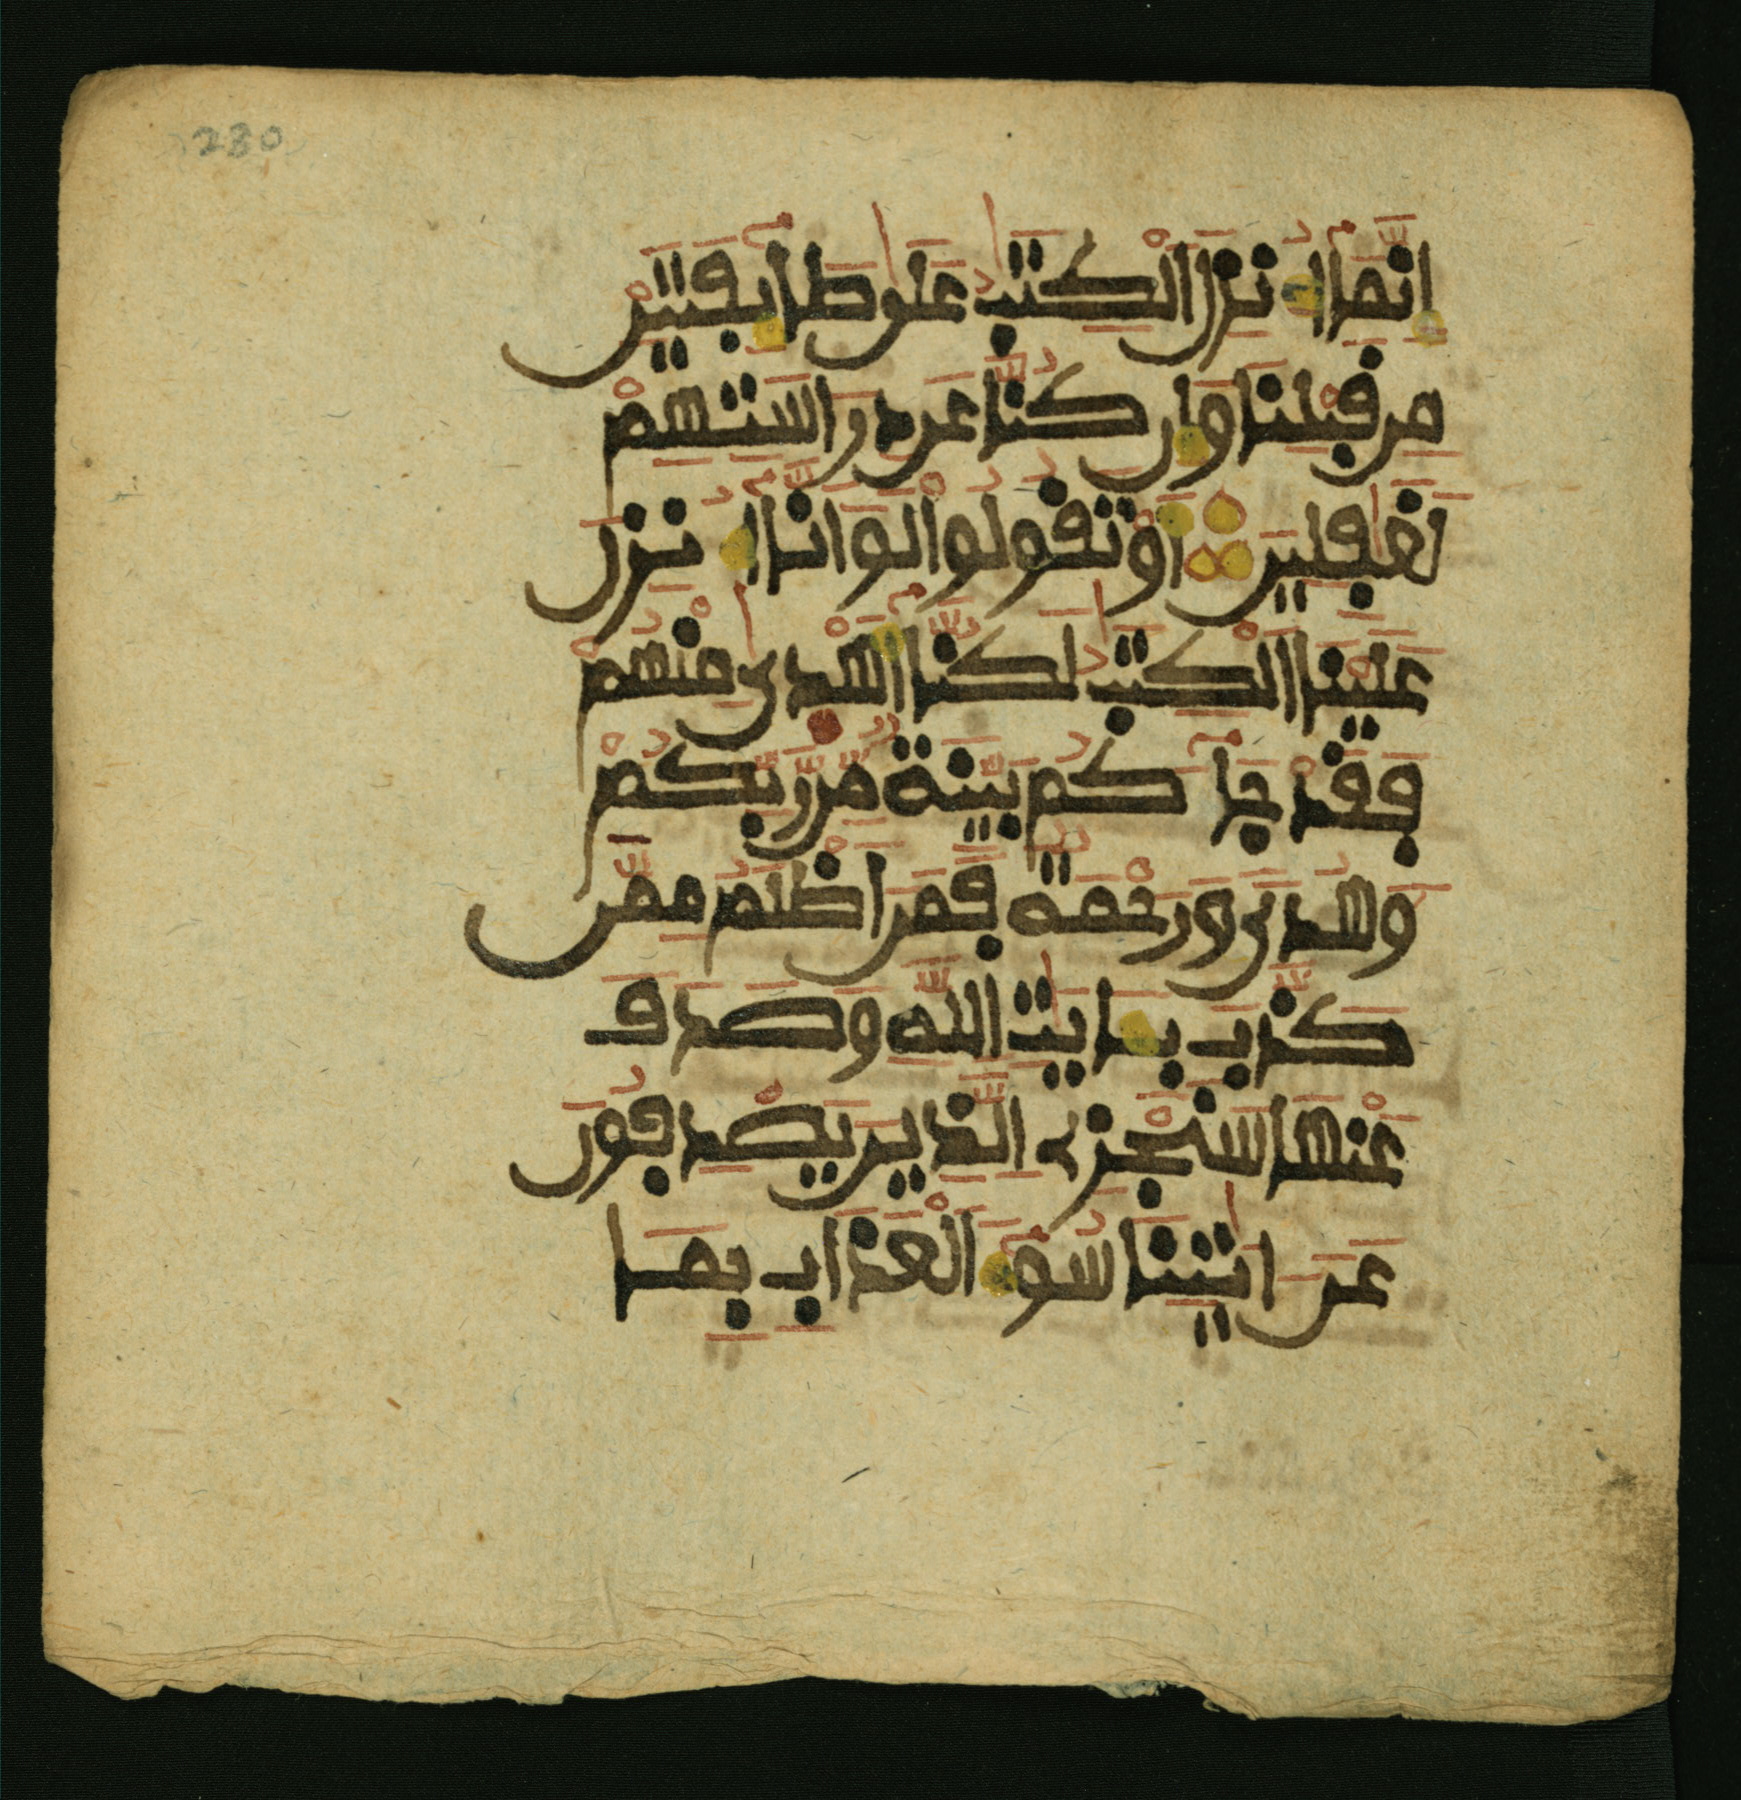 230
انما انزل الكتب على طايفتين
من قبلنا وان كنا عن دراستهم
لغفلين او تقولوا لو انا انزل
علينا الكتب لكنا اهدى منهم
فقد جاكم بينة من ربكم
وهدى ورحمة فمن اظلم ممن
كذب بايت الله وصدف
عنها سنجزء الذين يصدفون
عن ايتنا سوء العذاب بما